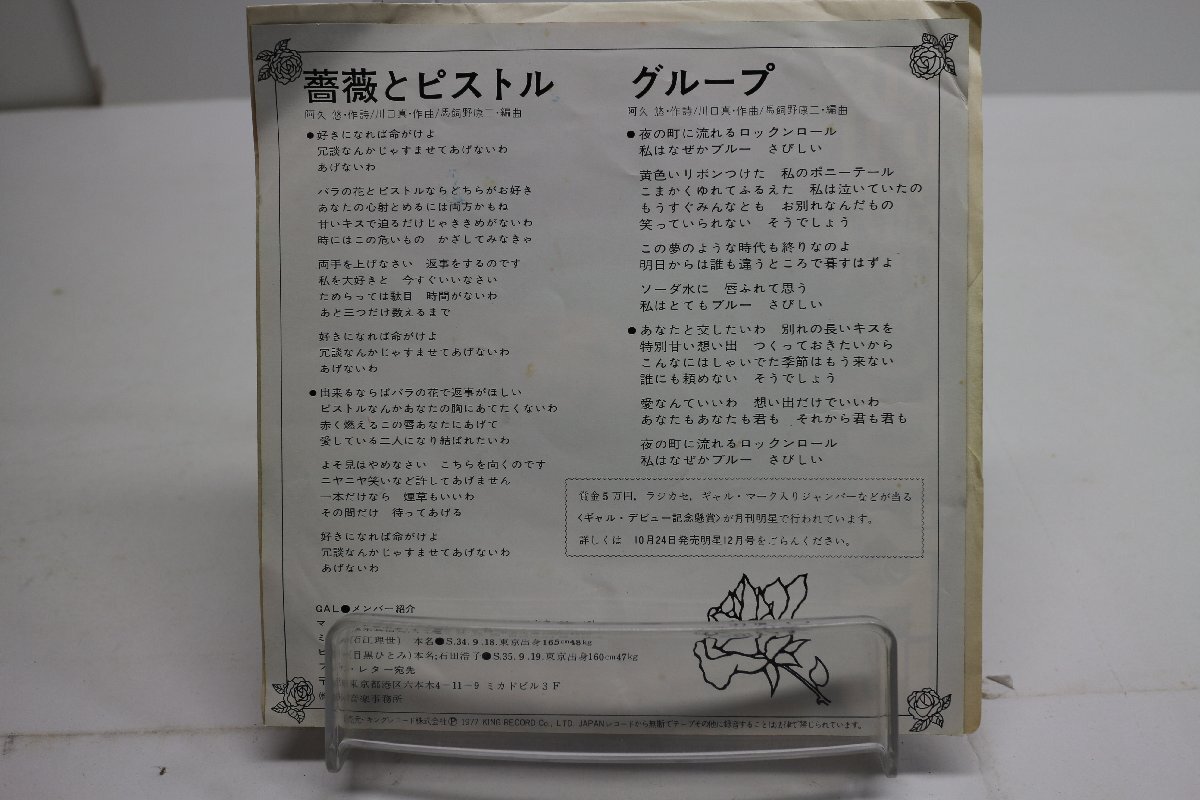 薔薇とピストル
阿久 悠・作詩/川口真・作曲/馬飼野康二・編曲
●好きになれば命がけよ
冗談なんかじゃすませてあげないわ
あげないわ
バラの花とピストルならどちらがお好き
あなたの心射とめるには両方かもね
甘いキスで迫るだけじゃききめがないわ
時にはこの危いもの かざしてみなきゃ
両手を上げなさい 返事をするのです
私を大好きと 今すぐいいなさい
ためらっては駄目 時間がないわ
あと三つだけ数えるまで
好きになれば命がけよ
冗談なんかじゃすませてあげないわ
あげないわ
●出来るならばバラの花で返事がほしい
ピストルなんかあなたの胸にあてたくないわ
赤く燃えるこの唇あなたにあげて
愛している二人になり結ばれたいわ
よそ見はやめなさい こちらを向くのです
ニヤニヤ笑いなど許してあげません
一本だけなら 煙草もいいわ
その間だけ 待ってあげる
好きになれば命がけよ
冗談なんかじゃすませてあげないわ
あげないわ
GAL●メンバー紹介
(石江理世) 本名●S.34.9.18.東京出身165cm48kg
(目黒ひとみ)本名;石田浩子●S.35.9.19.東京出身160cm47kg
・レター宛先
東京都港区六本木4-11-9 ミカドビル3F
音楽事務所
グループ
阿久 悠・作詩/川口真・作曲/馬飼野康二・編曲
●夜の町に流れるロックンロール
私はなぜかブルー さびしい
黄色いリボンつけた 私のポニーテール
こまかくゆれてふるえた 私は泣いていたの
もうすぐみんなとも お別れなんだもの
笑っていられない そうでしょう
この夢のような時代も終りなのよ
明日からは誰も違うところで暮すはずよ
ソーダ水に 唇ふれて思う
私はとてもブルー さびしい
●あなたと交したいわ 別れの長いキスを
特別甘い想い出 つくっておきたいから
こんなにはしゃいでた季節はもう来ない
誰にも頼めない そうでしょう
愛なんていいわ 想い出だけでいいわ
あなたもあなたも君も それから君も君も
夜の町に流れるロックンロール
私はなぜかブルー さびしい
賞金5万円、ラジカセ、ギャル・マーク入りジャンパーなどが当る
〈ギャル・デビュー記念懸賞〉が月刊明星で行われています。
詳しくは 10月24日発売明星12月号をごらんください。
売元・キングレコード株式会社Ⓟ 1977 KING RECORD Co., LTD. JAPAN レコードから無断でテープその他に録音することは法律で禁じられています。